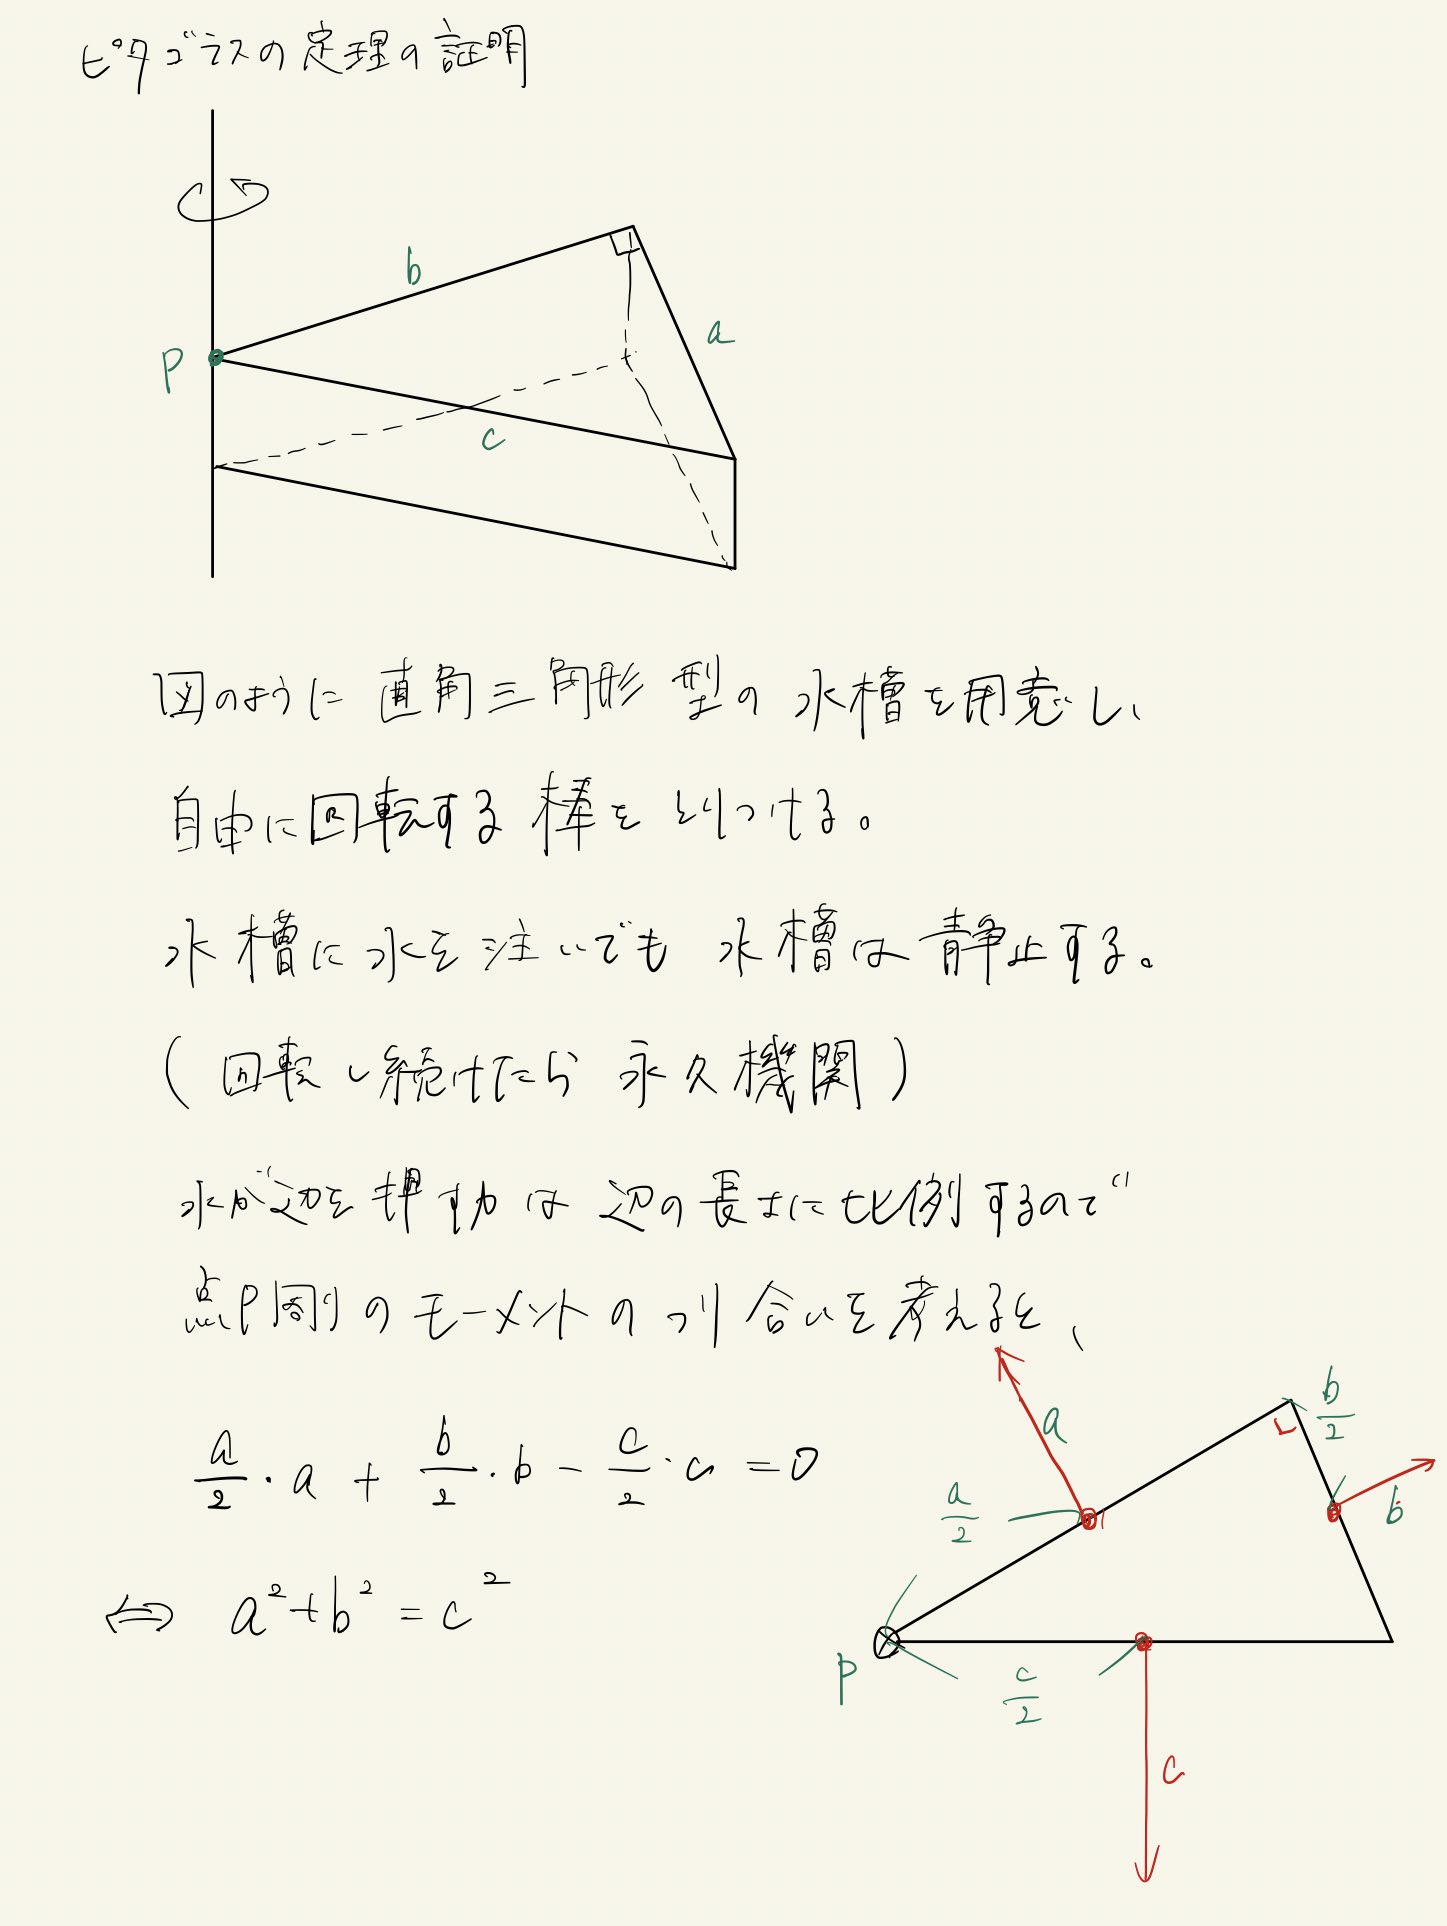 ピタゴラスの定理の証明
b
P
a
c
図のように直角三角形型の水槽を用意し、
自由に回転する棒をとりつける。
水槽に水を注いでも水槽は静止する。
(回転し続けたら永久機関)
水が辺を押す力は辺の長さに比例するので
点P周りのモーメントのつり合いを考えると、
a/2・a + b/2・b − c/2・c = 0
⇔ a² + b² = c²
a
b/2
a/2
b
P
c/2
c